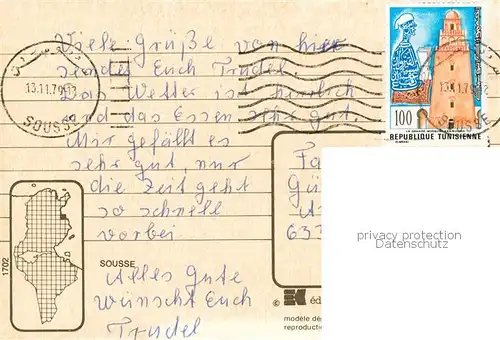 Viele Grüße von hier
sendet Euch Trudel.
Das Wetter ist herrlich
und das Essen sehr gut.
Mir gefällt es
sehr gut, nur
die Zeit geht
so schnell
vorbei.
Alles Gute
wünscht Euch
Trudel
13.11.79
SOUSSE
100
REPUBLIQUE TUNISIENNE
13.11.79
SOUSSE
Fa
Gü
633
privacy protection
Datenschutz
1702
SOUSSE
© éd
modèle dé
reproductio